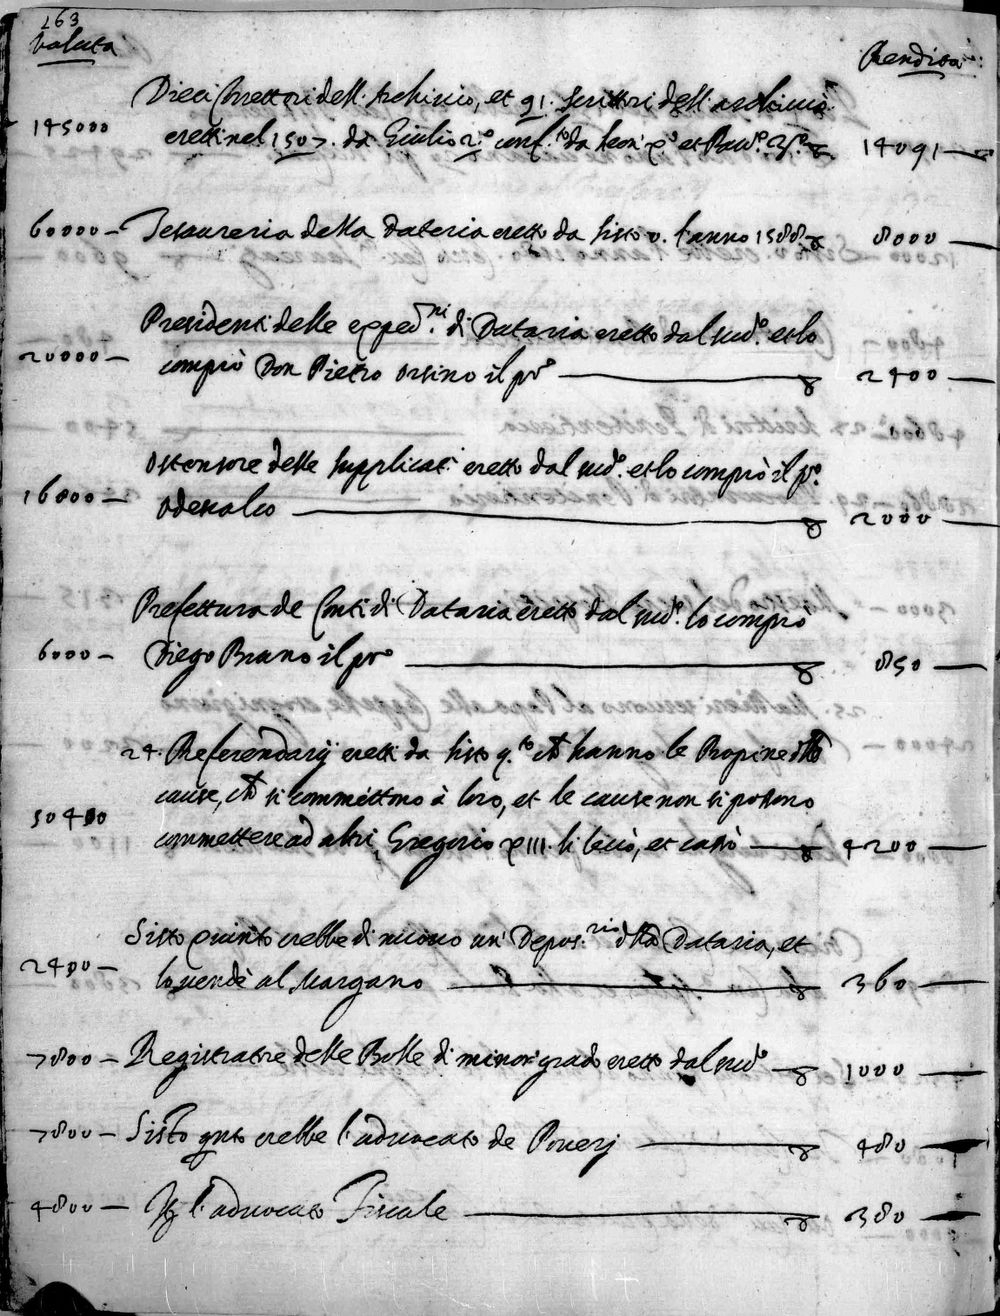 263
Valuta Rendita
Dieci Correttori dell'Archivio, et 91. scrittori dell'archivio
145000 eretti nel 1507. da Giulio 2.º conf.ti da Leon Xº et Paul.º 3.º 14091
60000 – Tesaureria della dateria eretto da Sisto v. l'anno 1588. 8000
Presidenti delle exped.ni di Dataria eretto dal med.º et lo
20000 – comprò Don Pietro Orsino il pr.º 2400
Ostensore delle supplicati eretto dal med.º et lo comprò il p.º
16000 – Odescalco 2000
Prefettura de Conti di Dataria eretto dal med.º lo comprò
6000 – Diego Brano il pr.º 850
24. Referendarij eretti da Sisto q.to ch'hanno le Propine dlle
cause, ch' si commettono à loro, et le cause non si possono
50400 commettere ad altri, Gregorio XIII. li levò, et cassò 4200
Sisto quinto erebbe di nuovo un' Depos.rio dlla Dataria, et
2400 – lo vendè al Margano 360
7800 – Registratore delle Bolle di minori grado eretto dal med.º 1000
7800 – Sisto qnto erebbe l'advocato de Poveri 480
4800 – Il l'advocato Fiscale 380